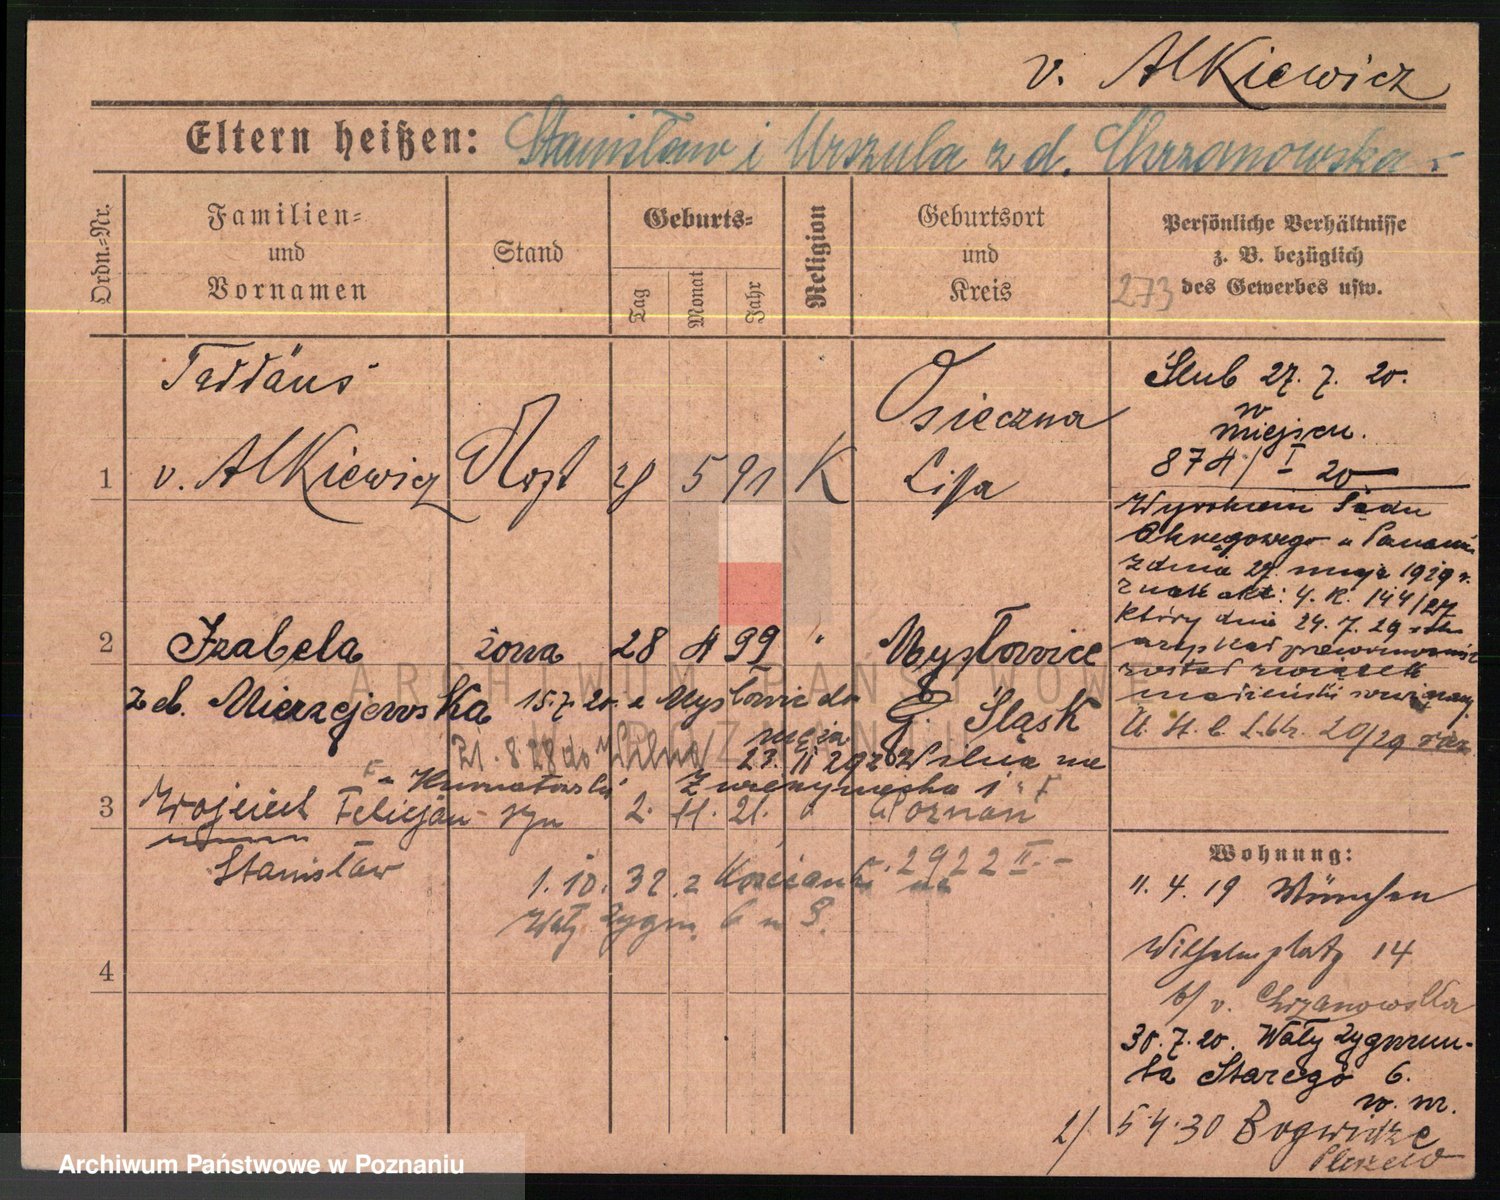 v. Alkiewicz
Eltern heißen: Stanisław i Urszula z d. Chrzanowska
Ordn.-Nr.
Familien-
und
Vornamen
Stand
Geburts-
Tag
Monat
Jahr
Religion
Geburtsort
und
Kreis
Persönliche Verhältnisse
z. B. bezüglich
des Gewerbes usw.
273
Taddäus
1 v. Alkiewicz 28 5 91 K
Osieczna
Lissa
Ślub 27. 7. 20.
w
miejscu.
874/I 20
Wyrokiem Sądu
Okręgowego w Poznaniu
z dnia 27. maja 1929 r.
znak akt: 4. R. 144/27
który dnia 24. 7. 29
prawomocność
został związek
małżeński rozwiązany.
2 Izabela żona 28 4 99 " Mysłowice
G. Śląsk
z d. Mierzejewska 15.7.20. z Mysłowic do
męża
21. 8. 28 do Wilna
3 Wojciech Felicjan syn 2. 11. 21. " Poznań
Stanisław
1. 10. 32 z Kościana
Wały Zygm. 6 m 8.
2922 II.
4
Wohnung:
11. 4. 19 München
Wilhelmplatz 14
b/ v. Chrzanowska
30. 7. 20. Wały Zygmun-
ta Starego 6.
w. m.
2/ 5.4.30 Bogwidze
Pleszew
ARCHIWUM PAŃSTWOWE
W POZNANIU
Archiwum Państwowe w Poznaniu